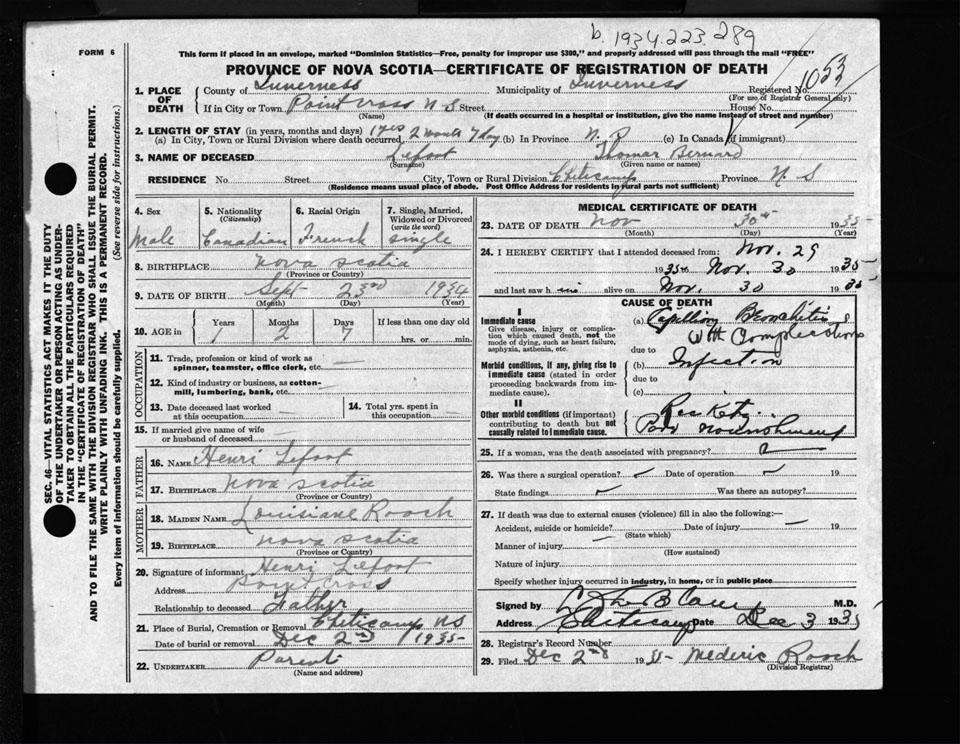 b. 1934.223289
FORM 6
This form if placed in an envelope, marked "Dominion Statistics—Free, penalty for improper use $300," and properly addressed will pass through the mail "FREE"
PROVINCE OF NOVA SCOTIA—CERTIFICATE OF REGISTRATION OF DEATH
1053
1. PLACE OF DEATH County of Inverness Municipality of Inverness Registered No.
(For use of Registrar General only)
If in City or Town Point Cross N S Street House No.
(Name) (If death occurred in a hospital or institution, give the name instead of street and number)
2. LENGTH OF STAY (in years, months and days)
(a) In City, Town or Rural Division where death occurred 1 yes 2 month 7 day (b) In Province N. P (c) In Canada (if immigrant)
3. NAME OF DECEASED Lefort Thomas Bernard
(Surname) (Given name or names)
RESIDENCE No. Street City, Town or Rural Division Cheticamp Province N. S
(Residence means usual place of abode. Post Office Address for residents in rural parts not sufficient)
4. Sex Male
5. Nationality (Citizenship) Canadian
6. Racial Origin French
7. Single, Married, Widowed or Divorced (write the word) single
8. BIRTHPLACE nova scotia
(Province or Country)
9. DATE OF BIRTH Sept 23rd 1934
(Month) (Day) (Year)
10. AGE in Years Months Days If less than one day old
1 2 7 hrs. or min.
OCCUPATION
11. Trade, profession or kind of work as spinner, teamster, office clerk, etc.
12. Kind of industry or business, as cotton-mill, lumbering, bank, etc.
13. Date deceased last worked at this occupation
14. Total yrs. spent in this occupation
15. If married give name of wife or husband of deceased
FATHER
16. NAME Henri Lefort
17. BIRTHPLACE nova scotia
(Province or Country)
MOTHER
18. MAIDEN NAME Louisiane Roach
19. BIRTHPLACE nova scotia
(Province or Country)
20. Signature of informant Henri Lefort
Address Point Cross
Relationship to deceased Father
21. Place of Burial, Cremation or Removal Cheticamp NS
Date of burial or removal Dec 2nd 1935
22. UNDERTAKER Parent
(Name and address)
MEDICAL CERTIFICATE OF DEATH
23. DATE OF DEATH Nov 30th 1935
(Month) (Day) (Year)
24. I HEREBY CERTIFY that I attended deceased from: Nov. 29
1935 to Nov. 30 1935
and last saw him alive on Nov. 30 1935
CAUSE OF DEATH
I
Immediate cause
Give disease, injury or complication which caused death, not the mode of dying, such as heart failure, asphyxia, asthenia, etc.
(a) Capillary Bronchitis
With Complications
due to
Morbid conditions, if any, giving rise to immediate cause (stated in order proceeding backwards from immediate cause).
(b) Infection
due to
(c)
II
Other morbid conditions (if important) contributing to death but not causally related to immediate cause.
Rickets
Poor nourishment
25. If a woman, was the death associated with pregnancy?
26. Was there a surgical operation? Date of operation 19
State findings Was there an autopsy?
27. If death was due to external causes (violence) fill in also the following:—
Accident, suicide or homicide? Date of injury 19
(State which)
Manner of injury
(How sustained)
Nature of injury
Specify whether injury occurred in industry, in home, or in public place
Signed by M.D.
Address Cheticamp Date Dec 3 1935
28. Registrar's Record Number
29. Filed Dec 2nd 1935 Mederic Roach
(Division Registrar)
SEC. 46—VITAL STATISTICS ACT MAKES IT THE DUTY
OF THE UNDERTAKER OR PERSON ACTING AS UNDER-
TAKER TO OBTAIN ALL THE PARTICULARS REQUIRED
IN THE "CERTIFICATE OF REGISTRATION OF DEATH"
AND TO FILE THE SAME WITH THE DIVISION REGISTRAR WHO SHALL ISSUE THE BURIAL PERMIT.
WRITE PLAINLY WITH UNFADING INK. THIS IS A PERMANENT RECORD.
Every item of information should be carefully supplied. (See reverse side for instructions.)